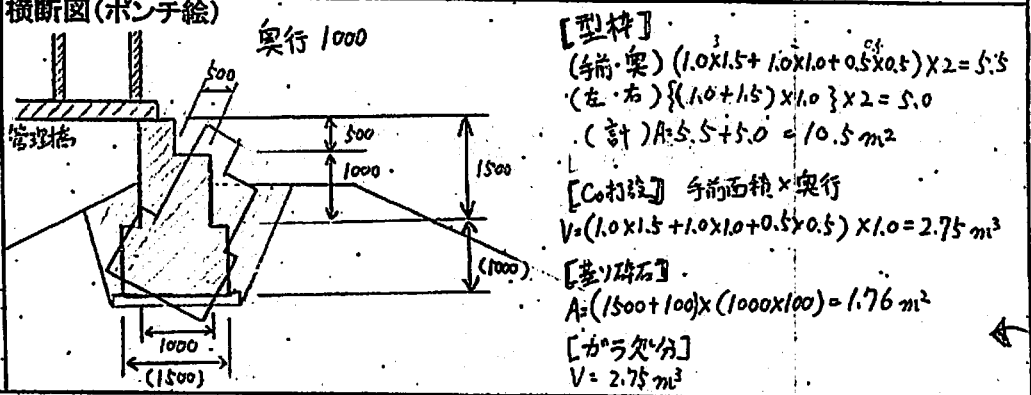 横断図(ポンチ絵)
奥行 1000
500
管理橋
500
1000
1500
(1000)
1000
(1500)
[型枠]
(手前・奥) (1.0×1.5+1.0×1.0+0.5×0.5)×2=5.5
(左・右) {(1.0+1.5)×1.0}×2=5.0
(計) A=5.5+5.0=10.5m²
[Co打設] 手前面積×奥行
V=(1.0×1.5+1.0×1.0+0.5×0.5)×1.0=2.75m³
[基り砕石]
A=(1500+100)×(1000×100)=1.76m²
[ガラ処分]
V=2.75m³